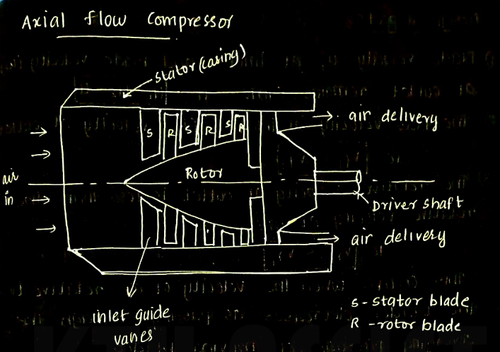 Axial flow compressor
stator (casing)
air delivery
S R S R S R
Rotor
air
in
Driver shaft
air delivery
inlet guide
vanes
S - stator blade
R - rotor blade